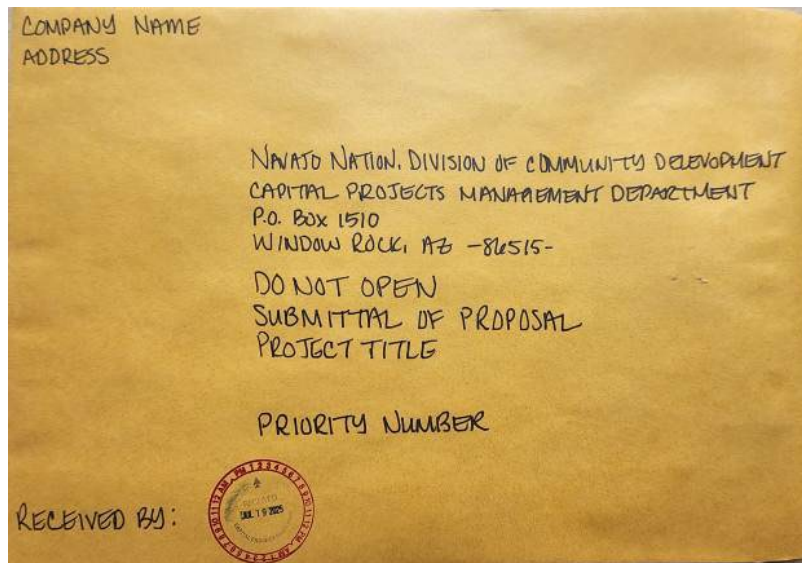 COMPANY NAME
ADDRESS
NAVAJO NATION, DIVISION OF COMMUNITY DELEVOPMENT
CAPITAL PROJECTS MANAGEMENT DEPARTMENT
P.O. BOX 1510
WINDOW ROCK, AZ -86515-
DO NOT OPEN
SUBMITTAL OF PROPOSAL
PROJECT TITLE
PRIORITY NUMBER
RECEIVED BY:
PM 1 2 3 4 5 6 7 8 9 10 11 12 PM
AM 1 2 3 4 5 6 7 8 9 10 11 12 AM
JUL 19 2025